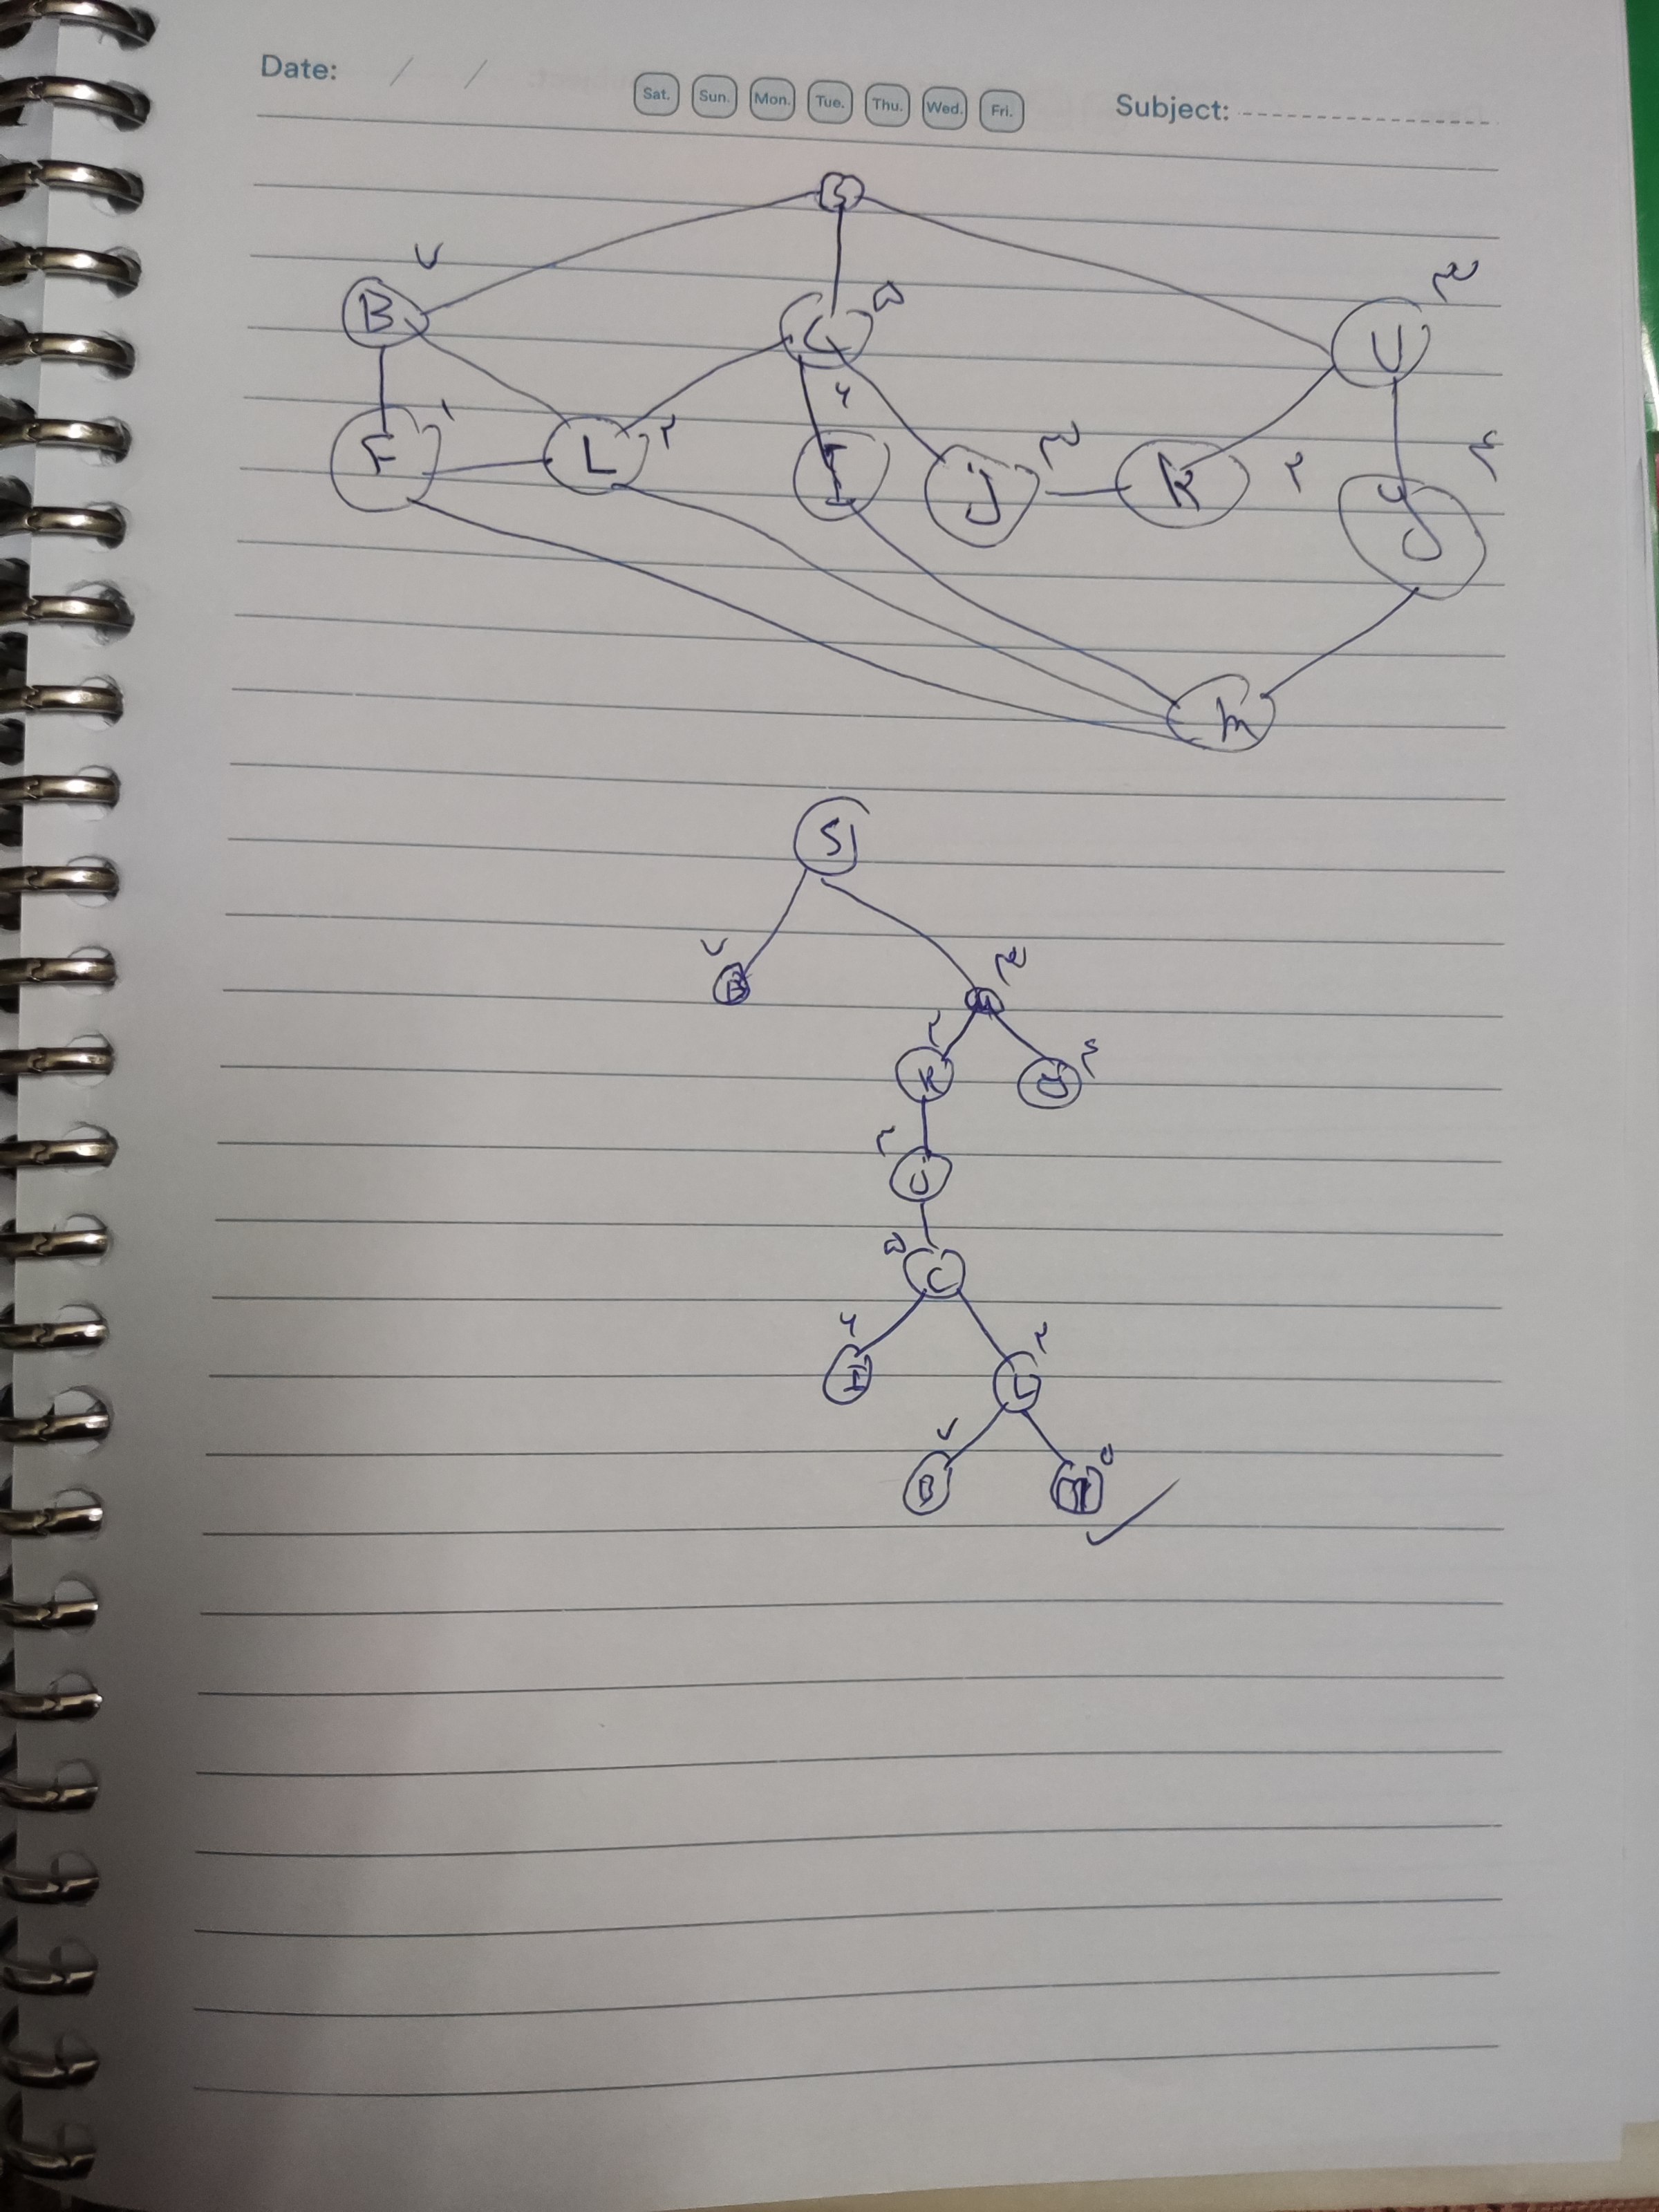 Date: / /
Sat. Sun. Mon. Tue. Thu. Wed. Fri.
Subject:
S
B ۷ C ۵ U ۳
F ۱ L ۲ I ۶ j ۳ K ۲ y ۴
m
S
B ۷ ۳
K ۲ ۴
J ۳
C ۵
I ۶ L ۲
B ۷ M ۰